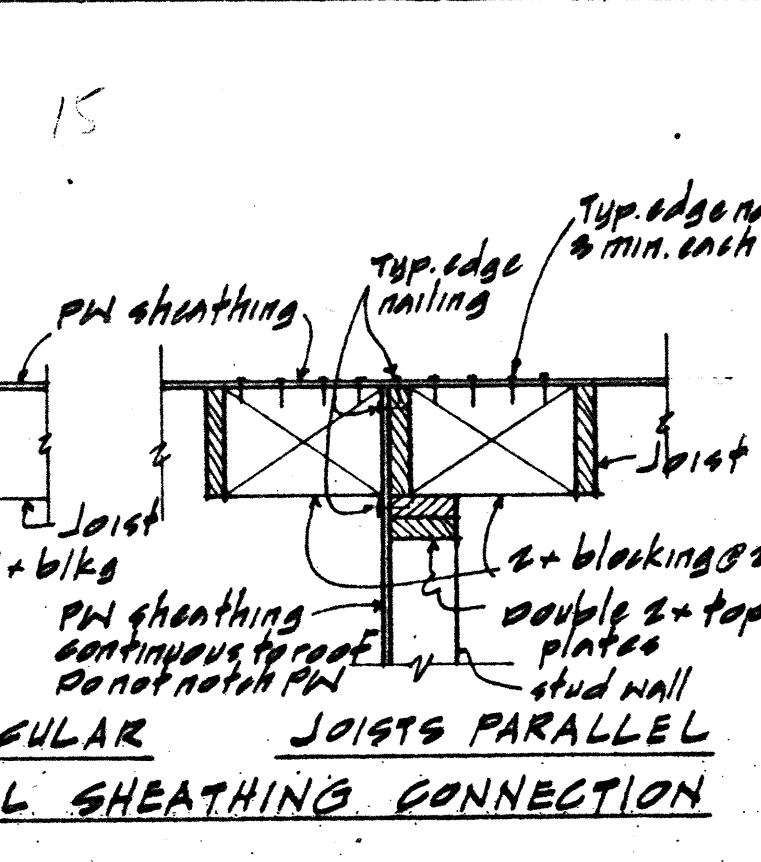 15
Typ. edge
8 min. each
Typ. edge
nailing
PW sheathing
Joist
Joist
+ blkg
2+ blocking @
PW sheathing
continuous to roof
Do not notch PW
Double 2+ top
plates
stud wall
JOISTS PARALLEL
SHEATHING CONNECTION